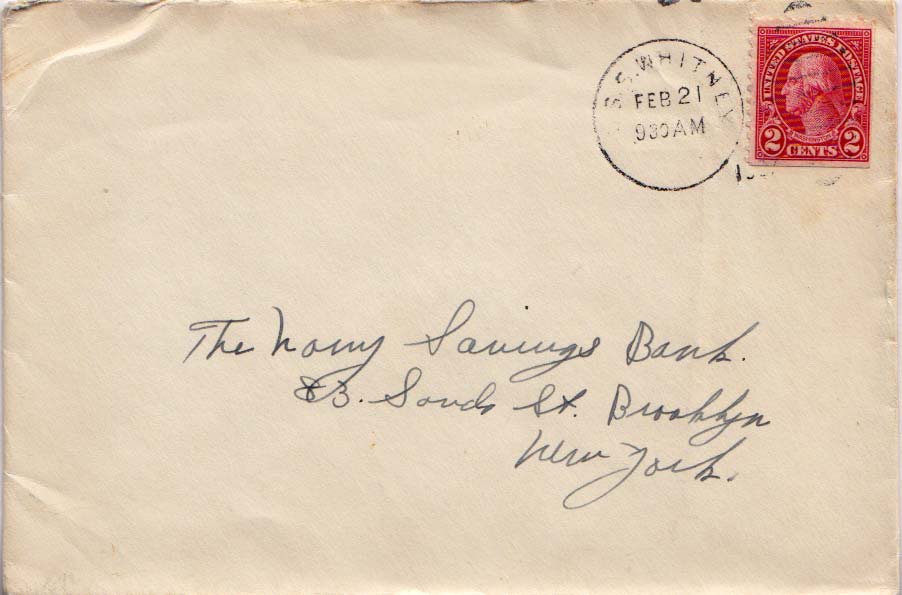 U.S.S. WHITNEY
FEB 21
930 AM
UNITED STATES POSTAGE
WASHINGTON
2 CENTS 2
The Navy Savings Bank.
83. Sands St. Brooklyn
New York.